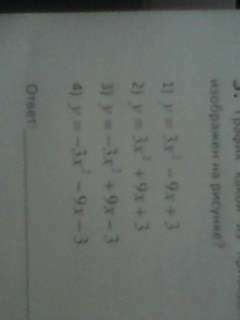 изображен на рисунке?
1) y = 3x² − 9x + 3
2) y = 3x² + 9x + 3
3) y = −3x² + 9x − 3
4) y = −3x² − 9x − 3
Ответ: